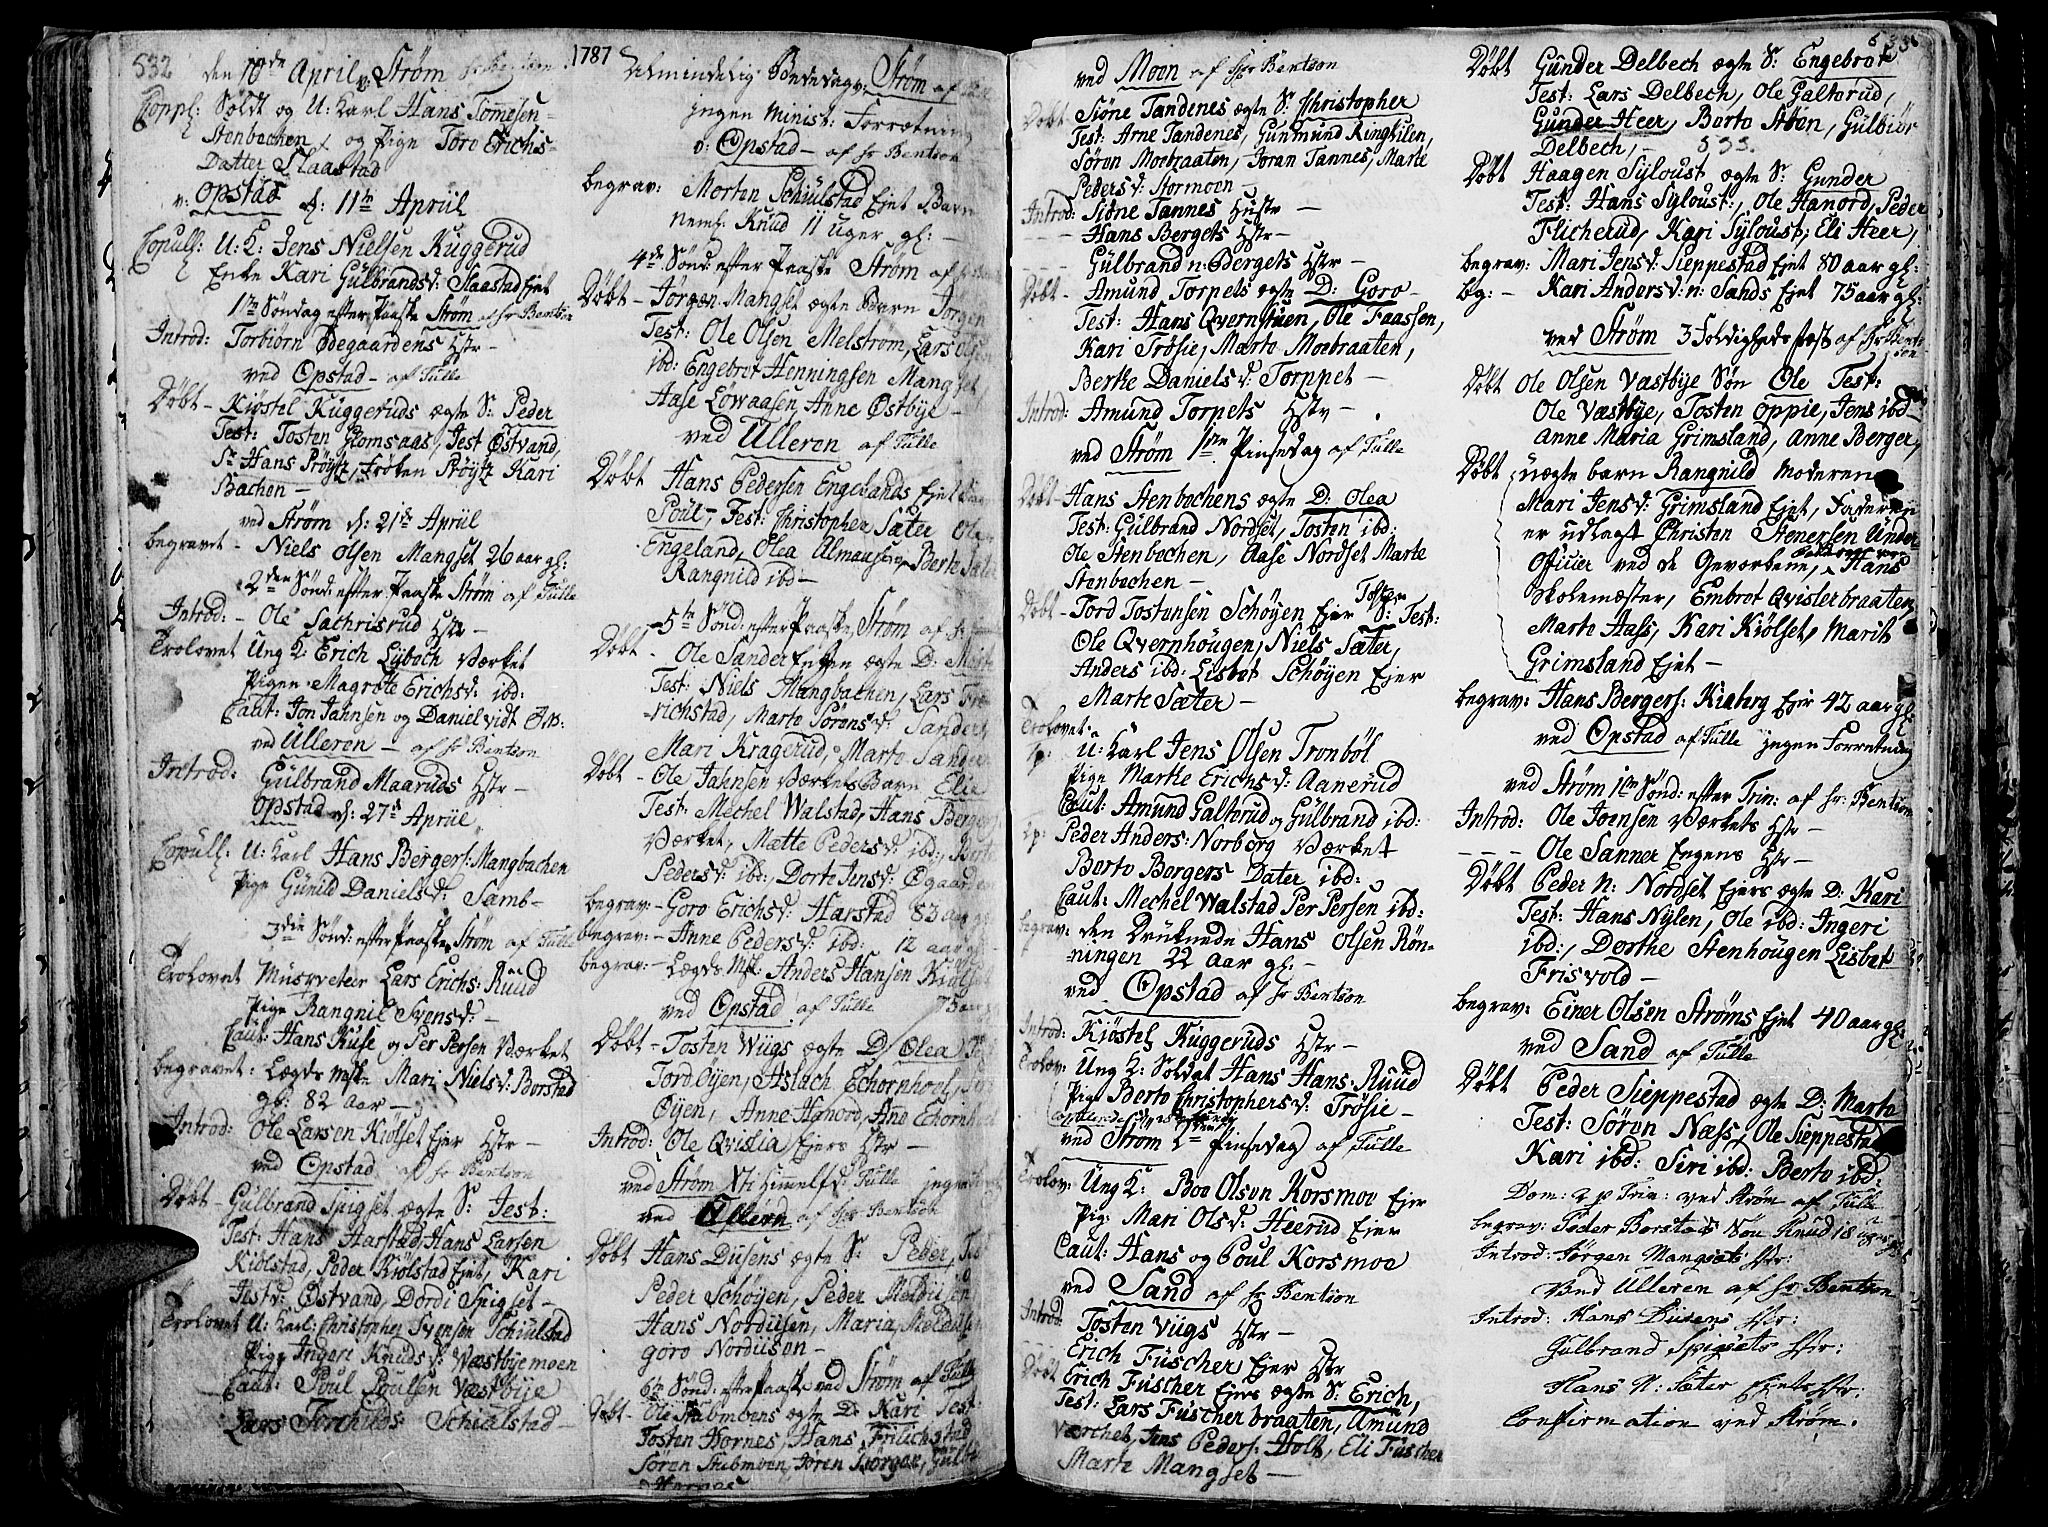 532
1787
den 10de April v. Strøm
Coppl: Soldt og U: Karl Hans Tomesen
Stenbechen og Pige Toro Erichs-
Datter Slaastad
v: Opstad d: 11te Apriil
Copull: U: K: Jens Nielsen Kuggerud
Enke Kari Gulbrandsd: Slaastad Ejet
1te Søndag efter Paaske Strøm af Hr Bentson
Introd: Torbiørn Ødegaardens Hstr -
ved Opstad - af Tulle
Døbt - Kiøstel Kuggeruds ægte S: Peder
Test: Tosten Glomsaas, Jest Østvand,
Sr Hans Prøytz, Frøken Prøytz Kari
Bachen -
ved Strøm d: 21de Apriil
begravet - Niels Olsen Mangset 26 aar gl:
2den Sønd: efter Paaske Strøm af Tulle
Introd: - Ole Sachrisrud Hstr -
Trolovet Ung K: Erich Lybech Værket
Pigen Magrete Erichsd: ibd:
Caut: Jon Jahnsen og Daniel vidt
ved Ulleren - af Hr Bentson
Introd: Gulbrand Maaruds Hstr -
Opstad d: 27de Apriil
Copull: U: Karl Hans Bergers: Mangbachen
Pige Gunild Danielsd: Samb-
3die Sønd: efter Paaske Strøm af Tulle
Trolovet Musqveteer Lars Erichs: Ruud
Pige Rangnil Svensd: -
Caut: Hans Kuse og Per Persen Værket
begravet: Lægds Mske Mari Nielsd: Borstad
gl: 82 aar -
Introd: Ole Larsen Kiølset Ejer Hstr -
ved Opstad af Hr Bentson
Døbt - Gulbrand Spigset ægte S: Jest:
Test: Hans Harstad, Hans Larsen
Kiølstad, Peder Kiølstad Ejet, Kari
Jestsd: Østvand, Dordi Spigset -
Trolovet U: Karl: Christopher Svensen Schiulstad
Pige Ingeri Knudsd: Væstbyemoen
Caut: Poul Poulsen Væstbye
Lars Torchilds Schiulstad -
Almindelig Bededag v: Strøm af
jngen Minist: Forretning
v: Opstad - af Hr Bentson
begrav: Morten Schiulstad Ejet Barn
neml. Knud 11 uger gl: -
4de Sønd: efter Paaske Strøm af Hr
Døbt - Jørgen Mangset ægte Barn Jørgen
Test: Ole Olsen Melstrom, Lars Olsen
ibd: Engebret Henningsen Mangset
Aase Løwaasen, Anne Østbye -
ved Ulleren af Tulle
Døbt Hans Pedersen Engelands Ejet
Poul, Test: Christopher Sæter Ole
Engeland, Olea Almaasen, Berte Sæter
Rangnild ibd -
5te Sønd: efter Paaske Strøm af Hr
Døbt - Ole Sander Engen ægte D:
Test: Niels Mangbachen, Lars
richstad, Marte Sørensd: Sander
Mari Kragerud, Marto Sander
Døbt - Ole Jahnsen Værkets Barn Elie
Test: Mechel Walstad, Hans Berger
Værket, Matte Pedersd: ibd:, Berte
Pedersd: ibd:, Dorte Jensd: Øgaarden
begrav: - Goro Erichsd: Harstad 83 aar gl
begrav: - Anne Pedersd: ibd: 12 aar gl
begrav: - Lægds Msk: Anders Hansen Kiølset
ved Opstad af Tulle 75 aar
Døbt - Tosten Wiigs ægte D: Olea
Tord Øijen, Aslach Echornhoel,
Øijen, Anne Hanord, And Echornhoel
Introd: Ole Qvislia Ejers Hstr -
ved Strøm Xti Himmelfd: Tulle jngen
ved Ulleren af Hr Bentson
Døbt Hans Dusens ægte S: Peder,
Peder Schøyen, Peder Meldiisen
Hans Nordiisen, Maria Meldiisen
goro Nordiisen -
6te Sønd: efter Paaske ved Strøm af Tulle
Døbt - Ole Stubmoens ægte D: Kari Test:
Tosten Hornes, Hans Frilichstad
Søren Stubmoen, Joren Borgae, Gulb
Hornes
ved Moen af Hr Bentson
Døbt Siøne Tandenes ægte S: Christopher
Test: Arne Tandenes, Gunmund Ringhilen,
Søren Moebraaten, Joran Tannes, Marte
Pedersd: Stormoen -
Introd: Siøne Tannes Hustr -
- - - Hans Bergets Hstr -
- - - Gulbrand n: Bergets Hstr -
Døbt - Amund Torpets ægte D: Goro -
Test: Hans Qvernstuen, Ole Faassen,
Kari Trøsie, Marto Moebraaten,
Berthe Danielsd: Torppet -
Introd: Amund Torpets Hstr -
ved Strøm 1ste Pinsedag af Tulle
Døbt - Hans Stenbechens ægte D: Olea
Test: Gulbrand Nordset, Tosten ibd:
Ole Stenbechen, Aase Nordset Marte
Stenbechen -
Døbt - Tord Tostensen Schøyen Ejer S: Tosten Test:
Ole Qvernhougen, Niels Sæter,
Anders ibd: Lisbet Schøyen Ejer
Marte Sæter -
Trolovet
U: Karl Jens Olsen Tronbøl
Pige Marthe Erichsd: Aanerud
Caut: Amund Galterud og Gulbrand ibd:
Peder Anders: Norborg Værket
Berto Bergers Dater ibd:
Caut: Mechel Walstad Per Persen ibd:
begrav: den Druknede Hans Olsen Røn-
ningen 22 aar gl: -
ved Opstad af Hr Bentson
Introd: Kiøstel Kuggeruds Hstr -
Trolov: Ung K: Soldat Hans Hans: Ruud
Pige Berto Christophersd: Trøsie -
ved Strøm 2den Pinsedag af Tulle
Trolov: Ung K: Boo Olsen Korsmoe Ejer
Pig: Mari Olsd: Heerud Ejer
Caut: Hans og Poul Korsmoe
ved Sand af Hr Bentson
Introd: Tosten Viigs Hstr -
Erich Fuscher Ejer Hstr
Døbt Erich Fuscher Ejers ægte S: Erich,
Test: Lars Fuscherbraaten, Amund
Værchet, Jens Peders: Holt, Eli Fuscher
Marte Mangset -
533
Døbt Gunder Delbech ægte S: Engebret
Test: Lars Delbech, Ole Galterud,
Gunder Heer, Berto Steen, Gulbiør
Delbech, - 533.
Døbt Haagen Syloust ægte S: Gunder
Test: Hans Syloust:, Ole Hanord, Peder
Flicherud, Kari Syloust, Eli Heer,
begrav: Mari Jensd: Sieppestad Ejet 80 aar gl:
bg: - Kari Andersd: n: Sands Ejet 75 aar gl:
ved Strøm 3foldigheds Fest af Hr Bent-
son
Døbt Ole Olsen Væstbye Søn Ole Test:
Ole Væstbye, Tosten Oppie, Jens ibd
Anne Maria Grimsland, Anne Berger,
Døbt uægte barn Rangnild Moderen
Mari Jensd: Grimsland Ejet, Faderen
er udlagt Christen Stenersen Under
Officier ved de Geworbene, Hans
Skolemæster, Embret Qvisterbraaten
Marte Aass, Kari Kiølset, Marit
Grimsland Ejet -
begrav: Hans Bergers: Kiaberg Ejer 42 aar gl
ved Opstad af Tulle jngen Forretning
ved Strøm 1te Sønd: efter Trin: af Hr: Bentson
Introd: Ole Joensen Værkets Hstr -
- - - Ole Sanner Engens Hstr -
Døbt Peder n: Nordset Ejers ægte D: Kari
Test: Hans Nylen, Ole ibd: Ingeri
ibd:, Dorthe Stenhougen Lisbet
Frisvold -
begrav: Einer Olsen Strøms Ejet 40 aar gl
ved Sand af Tulle
Døbt Peder Sieppestad ægte D: Marto
Test: Søren Næss, Ole Sieppestad
Kari ibd: Siri ibd: Berto ibd:
Dom: 2 p Trin: ved Strøm af Tulle
begrav: Peder Borstads Søn Knud 18
Introd: Jørgen Mangsæts Hstr:
Ved Ulleren af Hr Bentson
Introd: Hans Dusens Hstr:
Gulbrand Spigsæts Hstr:
Hans N: Sæter Ejets Hstr:
Confirmation ved Strøm: